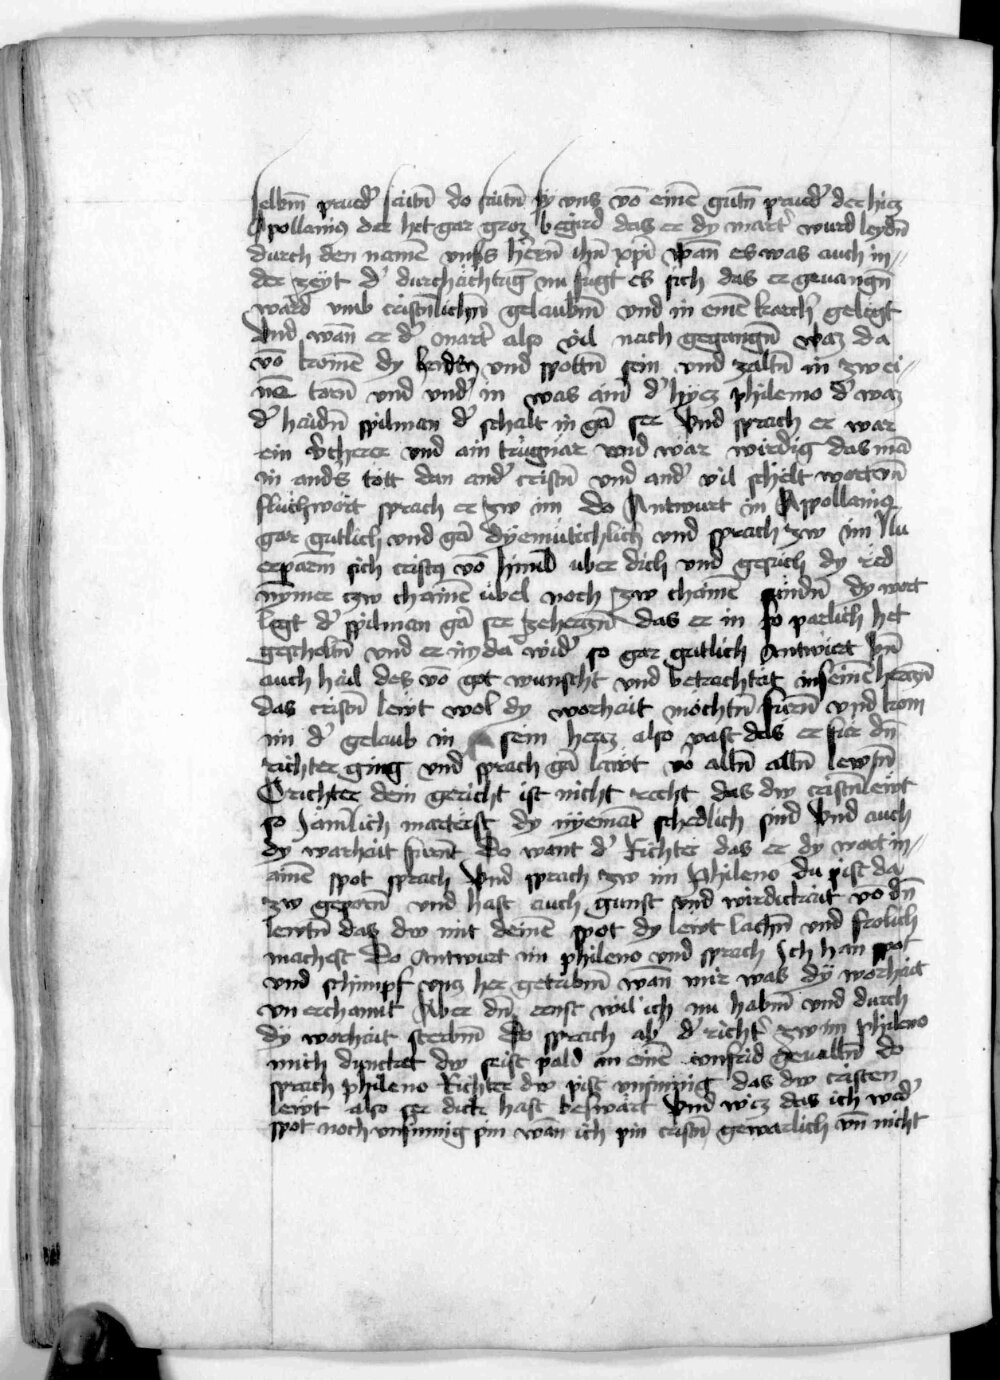 selbm̄ prued' sāitn̄ do saitn̄ sy uns vō einē gutn̄ prued' der hiez
Apollanius der het gar groz begird das er dy mart' wurd leydn̄
durch den namē vnss hern̄ ihū xpī wan̄ es was auch in
der zeyt d' durchächtūg nu fugt es sich das er geuangn̄
ward vmb cristnlichn̄ gelaubm̄ vnd in einē karch' gelegt
Vnd wan̄ er d' mart' also vil nach gegangn̄ waz da
vō komē dy heidn̄ vnd spottn̄ sein vnd zaltn̄ in zw ei
nē torn̄ vnd vnd' in was ain' d' hyez philemo d' waz
d' haidn̄ spilman d' schalt in gā ser Vnd sprach er war
ein v'cherer vnd ain trugnar vnd war wirdig das mā
in and's tött dan and' cristn̄ vnd and' vil schelt wortnn̄
fluchwort sprach er zw im do Antwurt in Apollanius
gar gutlich vnd gā dyemutichlich vnd sprach zw im Nu
erparm̄ sich cristus vō himl uber dich vnd gesuch dy red
nymer czw chainē übel noch zw chainē sundn̄ dy wort
legt d' spilman gā ser zeherczn̄ das er in so pärlich het
gescholtn̄ vnd er im da wid' so gar gutlich Antwurt vn̄
auch hail des vō got wunscht vnd betrachtät in seinē herczn̄
das cristn̄ lewt wol dy worhait möchtn̄ fürn̄ vnd kom
im d' gelaub in sein hercz also vast das er fur dn̄
richter ging vnd sprach gā lawt vō alln̄ altn̄ lewtn̄
O richter dein gericht ist nicht recht das dw cristn̄lewt
so iämlich marterst dy nyemāt schedlich sind Vnd auch
dy warhait furnt Do want d' richter das er dy wort in
ainē spot sprach Vnd sprach zw im Phileno du pist da
zw geporn̄ vnd hast auch gunst vnd wirdickait vō dn̄
lewtn̄ das dw mit deinē spot dy lewt lachn̄ vnd frolich
machest Do Antwurt im phileno vnd sprach Ich han spot
vnd schimpf vnz her getribm̄ wan̄ mir was dy worhait
vn erchannt Aber dn̄ ernst wil ich nu habm̄ vnd durch
dy worhait sterbm̄ Do sprach ab' d' richt' zw im Phileno
mich dunckt dw seist pald in einē vnfrid gevalln̄ do
sprach phileno Richter dw pist vnsinnig das dw cristen
lewt also ser dick hast beswärt Vnd wiz das ich wed'
spot noch vnsinnig pin wan̄ ich pin cristn̄ gewarlich vn̄ nicht